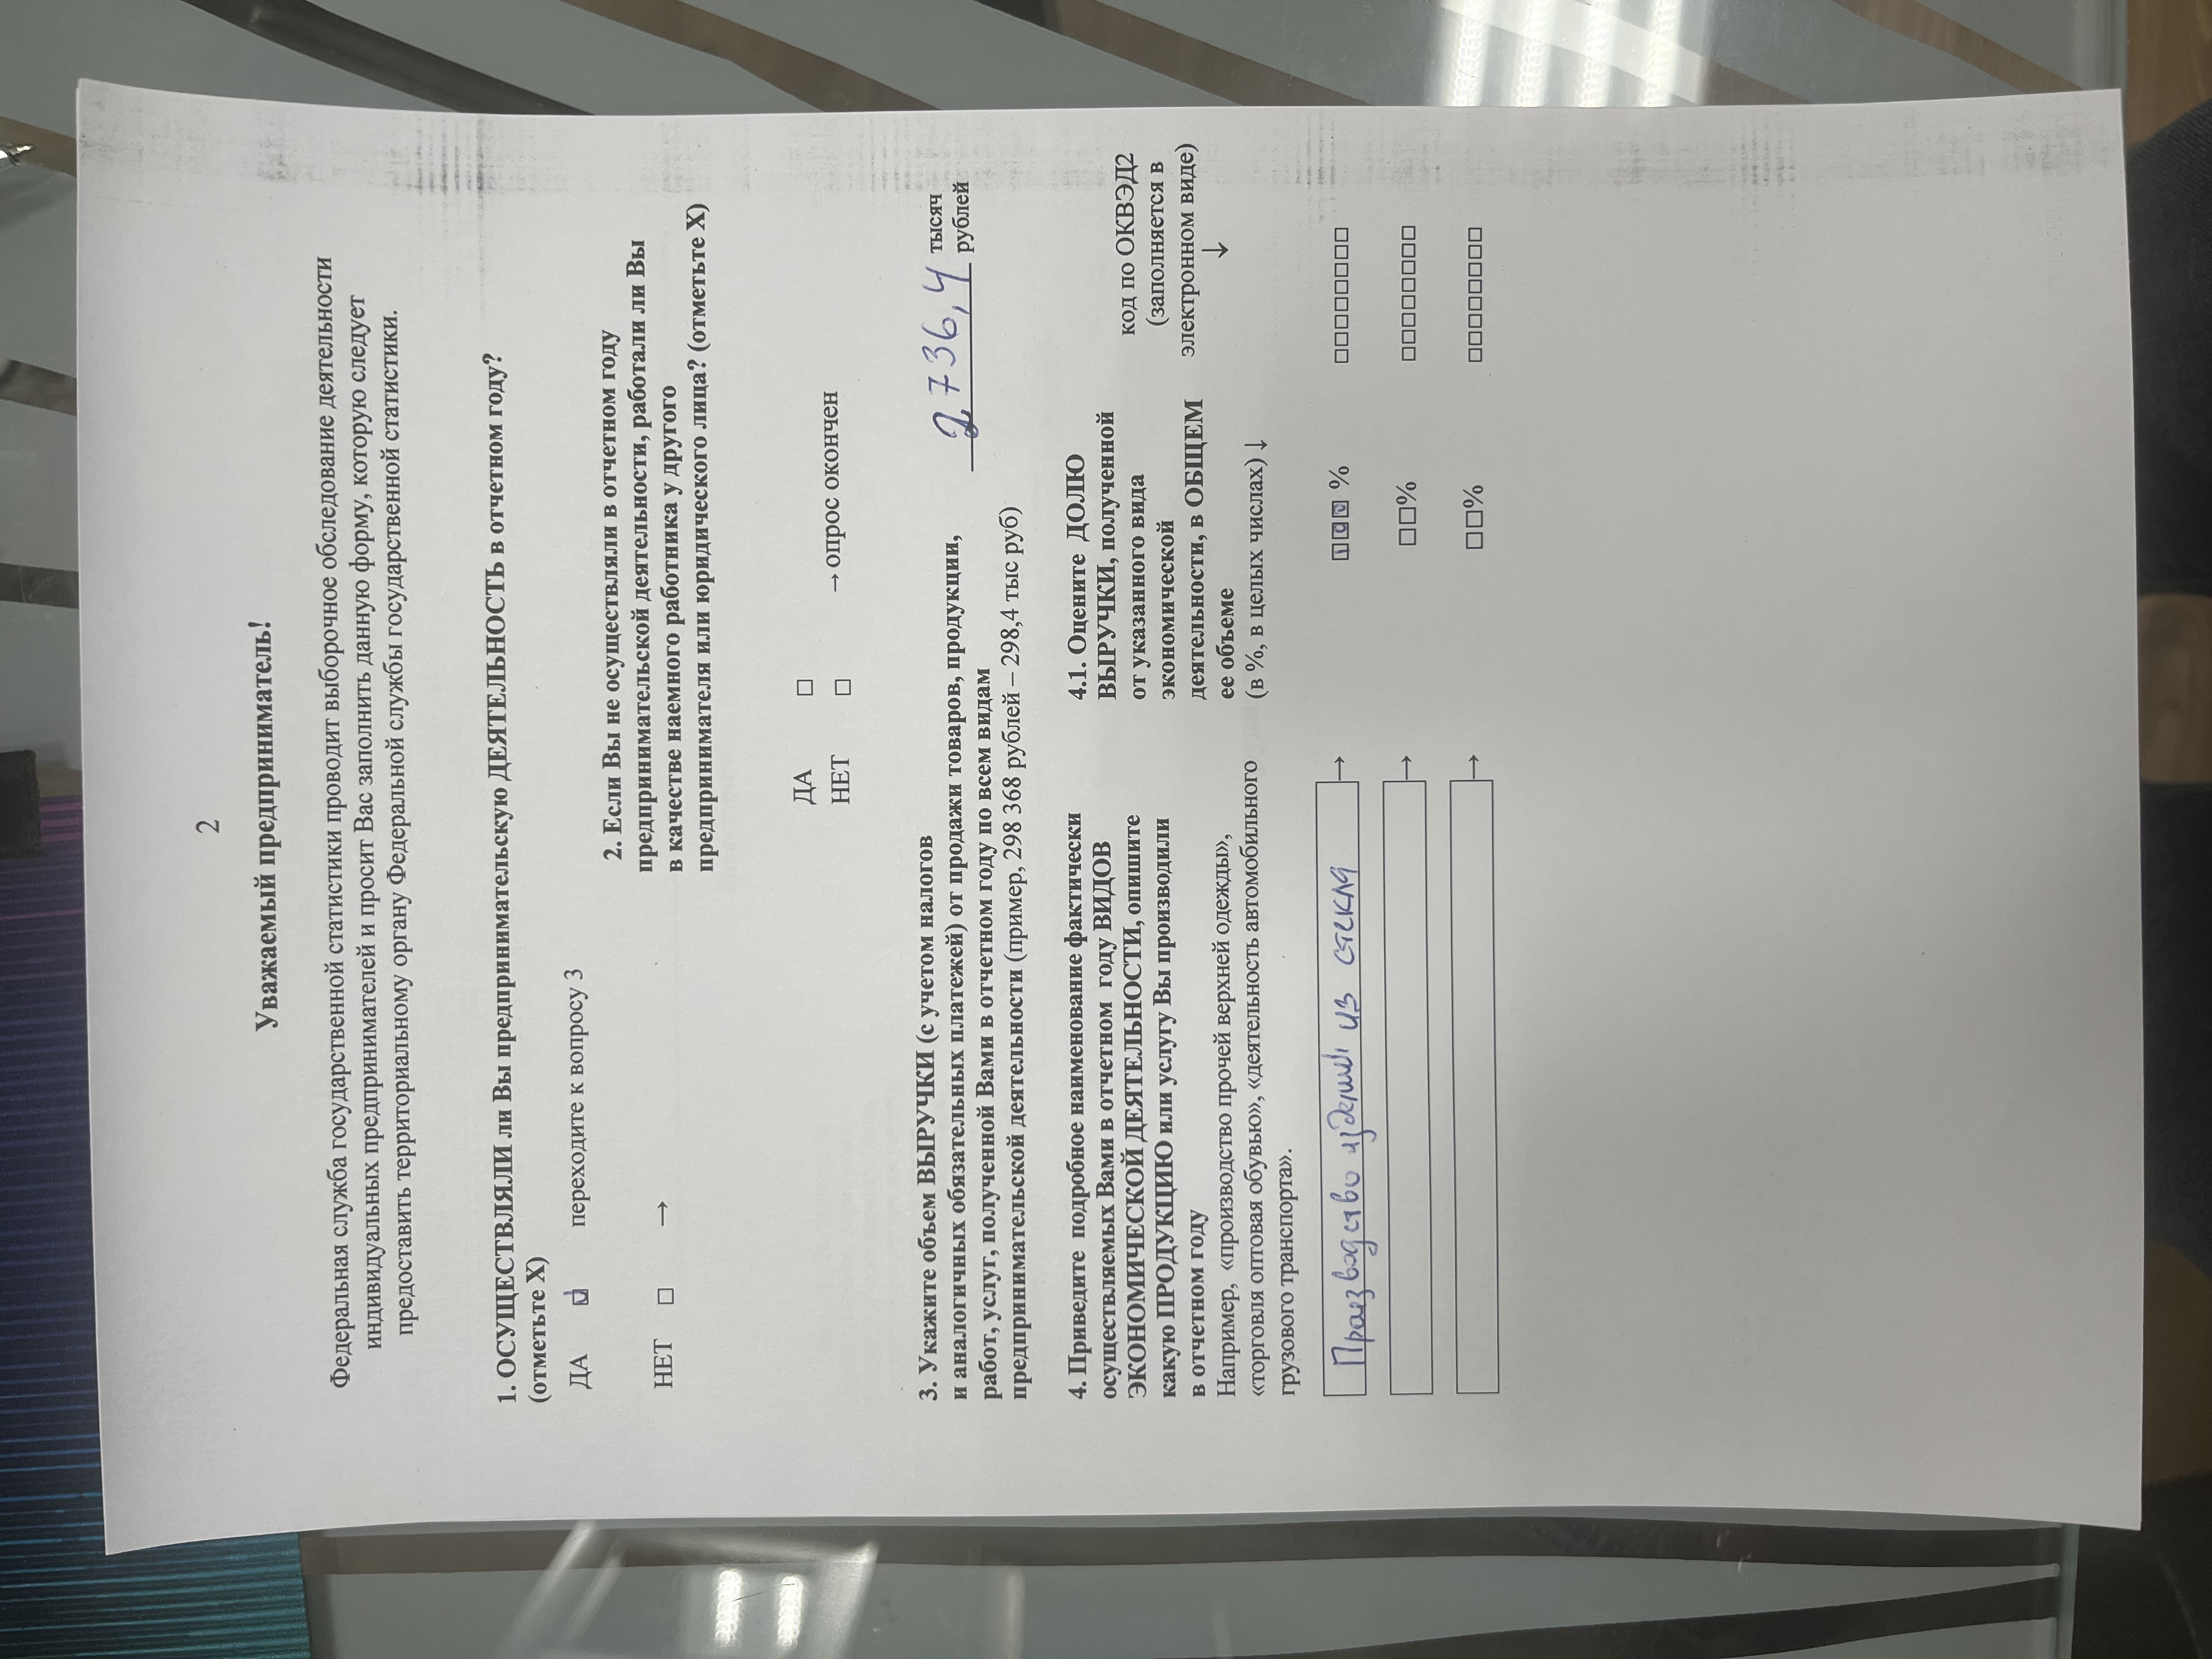 2
Уважаемый предприниматель!
Федеральная служба государственной статистики проводит выборочное обследование деятельности
индивидуальных предпринимателей и просит Вас заполнить данную форму, которую следует
предоставить территориальному органу Федеральной службы государственной статистики.
1. ОСУЩЕСТВЛЯЛИ ли Вы предпринимательскую ДЕЯТЕЛЬНОСТЬ в отчетном году?
(отметьте X)
ДА ☑ переходите к вопросу 3
НЕТ □ →
2. Если Вы не осуществляли в отчетном году
предпринимательской деятельности, работали ли Вы
в качестве наемного работника у другого
предпринимателя или юридического лица? (отметьте X)
ДА □
НЕТ □ → опрос окончен
3. Укажите объем ВЫРУЧКИ (с учетом налогов
и аналогичных обязательных платежей) от продажи товаров, продукции,
работ, услуг, полученной Вами в отчетном году по всем видам
предпринимательской деятельности (пример, 298 368 рублей – 298,4 тыс руб)
2736,4 тысяч
рублей
4. Приведите подробное наименование фактически
осуществляемых Вами в отчетном году ВИДОВ
ЭКОНОМИЧЕСКОЙ ДЕЯТЕЛЬНОСТИ, опишите
какую ПРОДУКЦИЮ или услугу Вы производили
в отчетном году
Например, «производство прочей верхней одежды»,
«торговля оптовая обувью», «деятельность автомобильного
грузового транспорта».
4.1. Оцените ДОЛЮ
ВЫРУЧКИ, полученной
от указанного вида
экономической
деятельности, в ОБЩЕМ
ее объеме
(в %, в целых числах) ↓
код по ОКВЭД2
(заполняется в
электронном виде)
↓
Производство изделий из стекла → 100 % □□□□□□□□
→ □□% □□□□□□□□
→ □□% □□□□□□□□